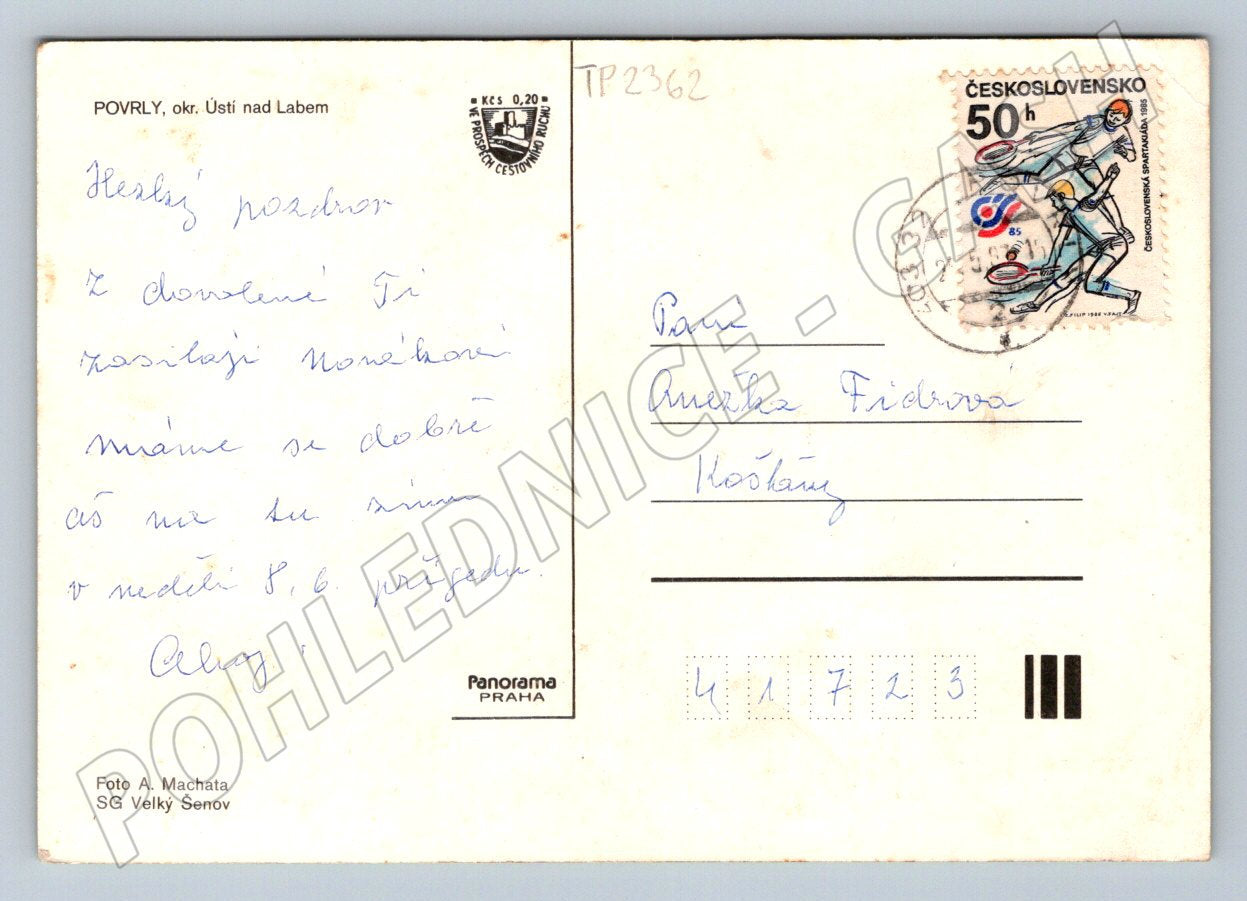 POVRLY, okr. Ústí nad Labem
Kčs 0,20
VE PROSPĚCH CESTOVNÍHO RUCHU
TP2362
ČESKOSLOVENSKO
50 h
ČESKOSLOVENSKÁ SPARTAKIÁDA 1985
85
Hezký pozdrav
z dovolené Ti
zasílají Novákovi
máme se dobře
až na tu zimu
v neděli 8. 6. přijedu.
Ahoj.
Paní
Anežka Fidrová
Košťany
41723
Panorama
PRAHA
Foto A. Machata
SG Velký Šenov
POHLEDNICE - CACH